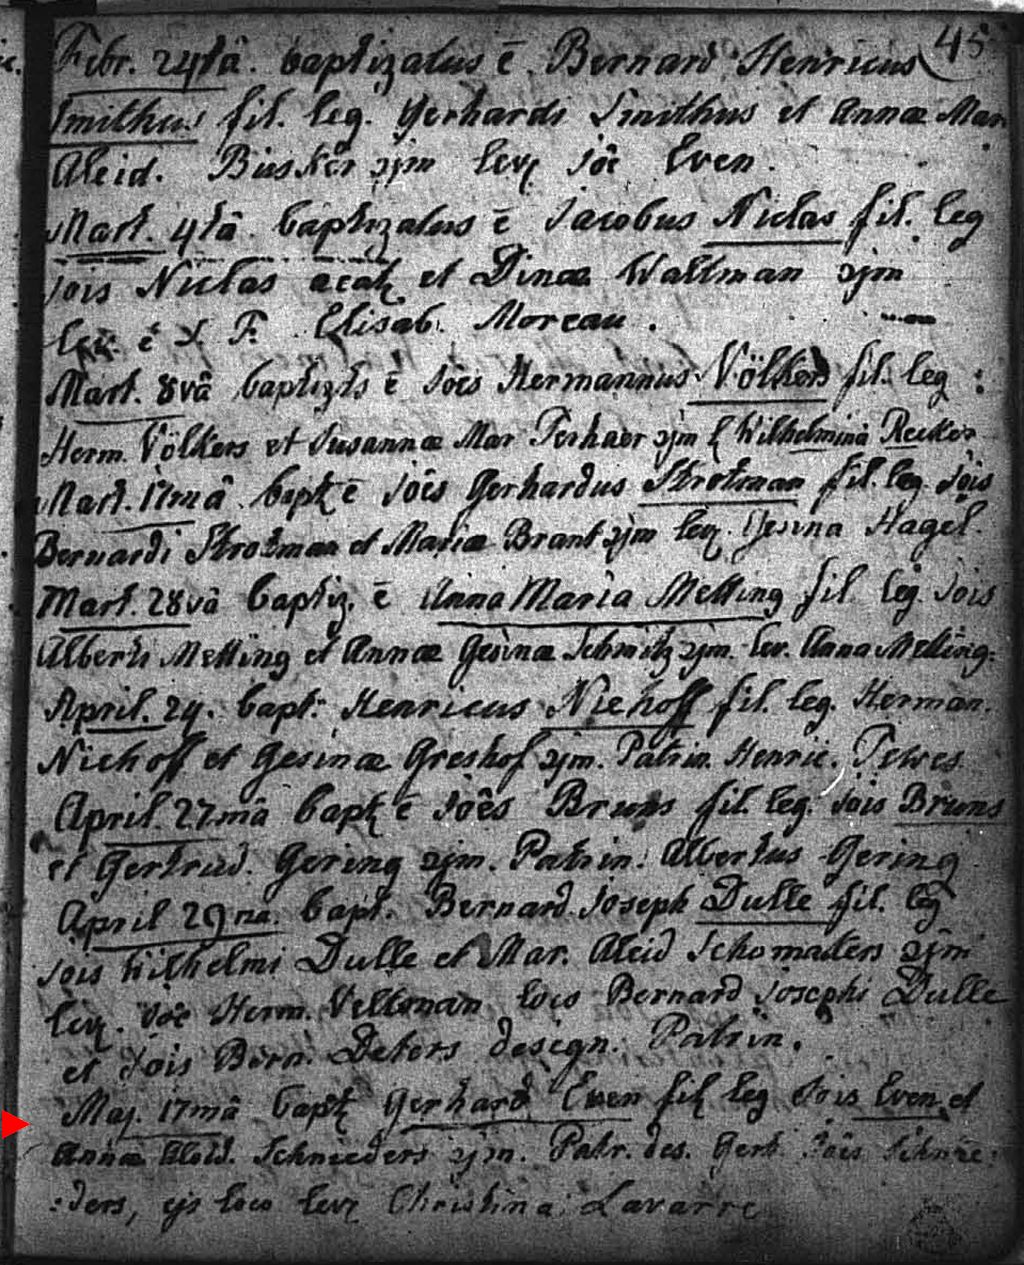 45
Febr. 24tâ. baptizatus ē Bernard Henricus
Smithus fil. leg. Gerhardi Smithus et Annæ Mar.
Aleid. Büsker Joê Even.
Mart. 4tâ. baptizatus ē Jacobus Niclas fil. leg
Jois Niclas et Dinæ Waltman
F. Elisab. Moreau.
Mart. 8vâ baptizts ē Joês Hermannus Völkers fil. leg:
Herm. Völkers et Susannæ Mar Terhaer Wilhelmina Recker
Mart. 17mâ bapt ē Joês Gerhardus Strotman fil. leg. Jois
Bernardi Strotman et Mariæ Brant lev. Gesina Hagel.
Mart. 28vâ baptiz. ē Anna Maria Melling fil. leg. Jois
Alberti Melling et Annæ Gesinæ Schmitz lev. Anna Melling.
April. 24. bapt. Henricus Niehoff fil. leg. Herman.
Niehoff et Gesinæ Greshof Patrin. Henric. Tewes
April. 27.mâ bapt ē Joês Bruns fil. leg. Jois Bruns
et Gertrud. Gering Patrin. Albertus Gering
April 29na. bapt. Bernard. Joseph Dulle fil. leg
Jois Wilhelmi Dulle et Mar. Aleid Schomakers
Herm. Veltman loco Bernard Josephi Dulle
et Jois Bern. Deters design. Patrin.
Maj. 17mâ bapt Gerhard Even fil leg Jois Even et
Annæ Aleid. Schnieders Patr. des. Gerh. Joês Schnie:
:ders, ejs loco lev Christina Lavarre